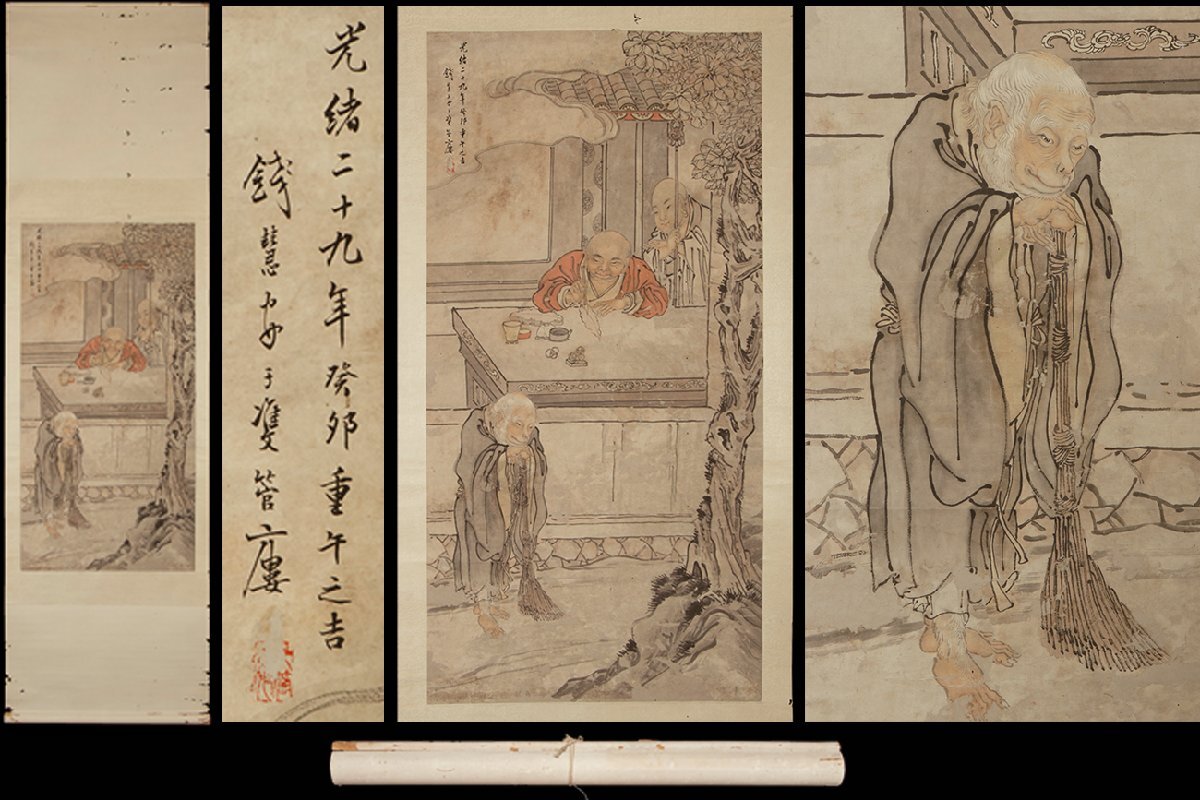 光緒二十九年癸卯重午之吉
錢慧安于雙管樓